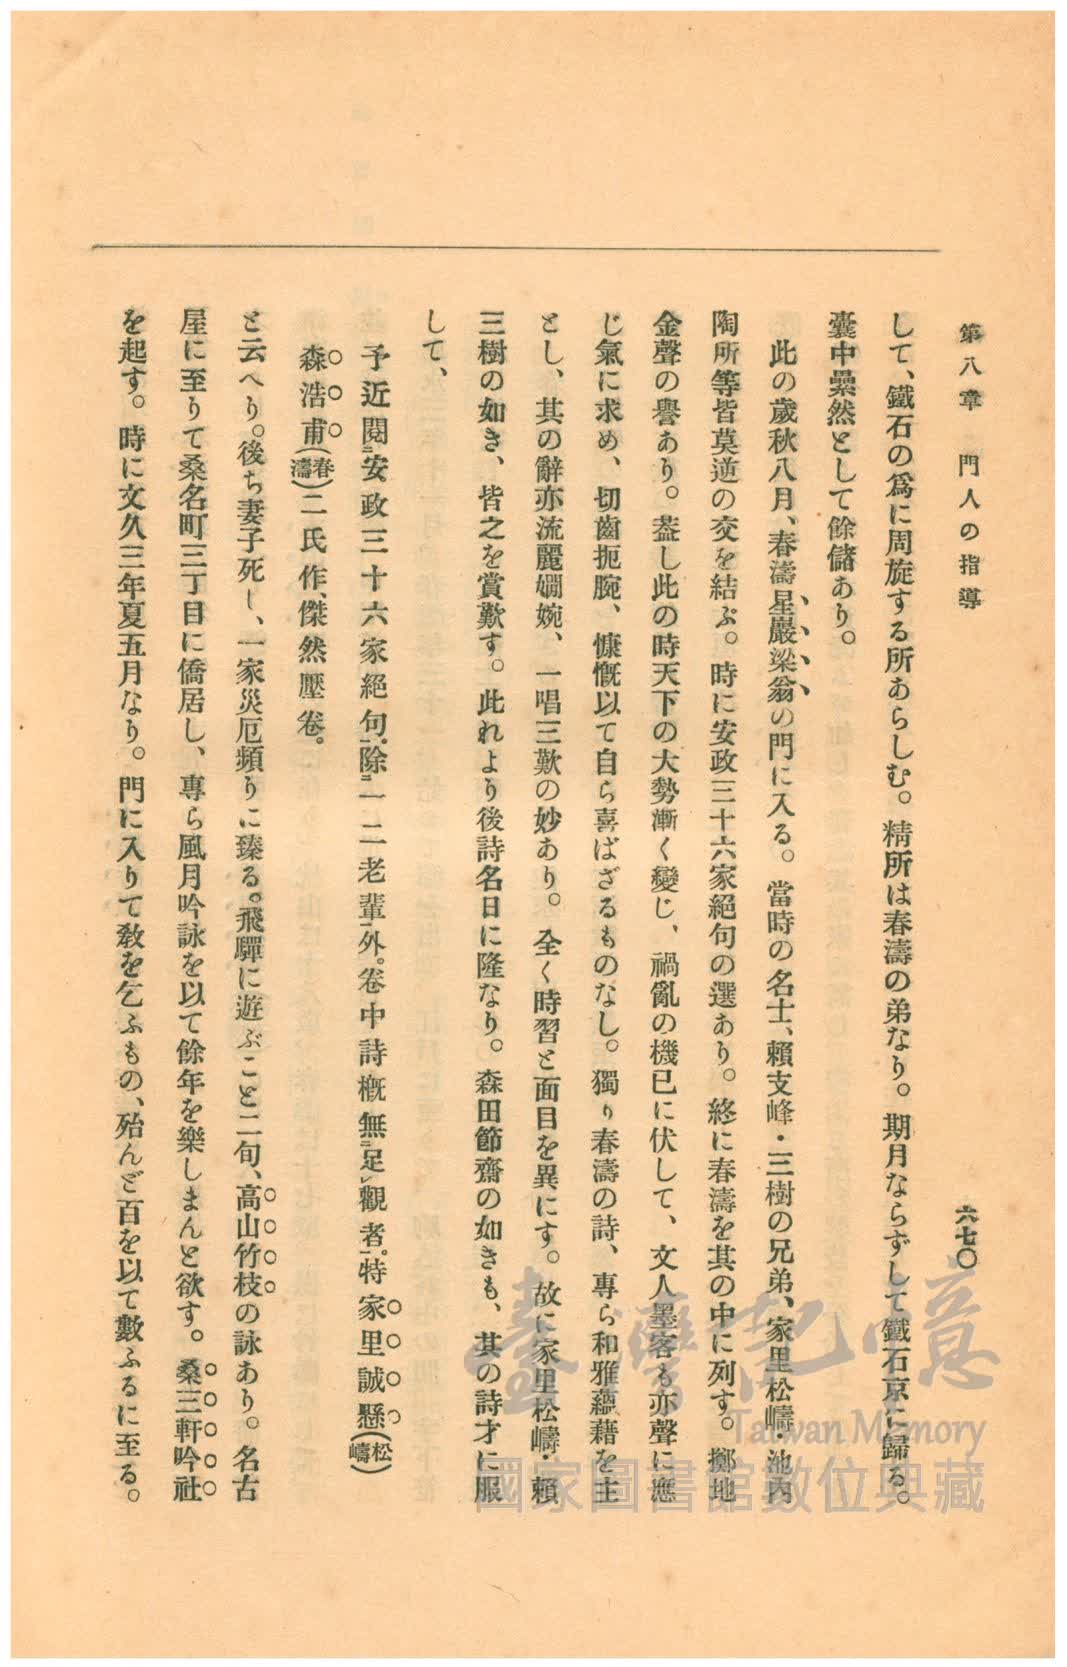 第八章　門人の指導
六七〇
して、鐵石の爲に周旋する所あらしむ。精所は春濤の弟なり。期月ならずして鐵石京に歸る。
囊中纍然として餘儲あり。
此の歲秋八月、春濤星巖梁翁の門に入る。當時の名士、賴支峰・三樹の兄弟、家里松嶹・池內
陶所等皆莫逆の交を結ぶ。時に安政三十六家絕句の選あり。終に春濤を其の中に列す。擲地
金聲の譽あり。蓋し此の時天下の大勢漸く變じ、禍亂の機已に伏して、文人墨客も亦聲に應
じ氣に求め、切齒扼腕、慷慨以て自ら喜ばざるものなし。獨り春濤の詩、專ら和雅蘊藉を主
とし、其の辭亦流麗嫺婉、一唱三歎の妙あり。全く時習と面目を異にす。故に家里松嶹・賴
三樹の如き、皆之を賞歎す。此れより後詩名日に隆なり。森田節齋の如きも、其の詩才に服
して、
予近閱二安政三十六家絕句一、除二一二老輩一外。卷中詩槪無レ足二觀者一。特家里誠懸(松嶹)
森浩甫(春濤)二氏作、傑然壓卷。
と云へり。後ち妻子死し、一家災厄頻りに臻る。飛驒に遊ぶこと二旬、高山竹枝の詠あり。名古
屋に至りて桑名町三丁目に僑居し、專ら風月吟詠を以て餘年を樂しまんと欲す。桑三軒吟社
を起す。時に文久三年夏五月なり。門に入りて敎を乞ふもの、殆んど百を以て數ふるに至る。
臺灣記憶
Taiwan Memory
國家圖書館數位典藏